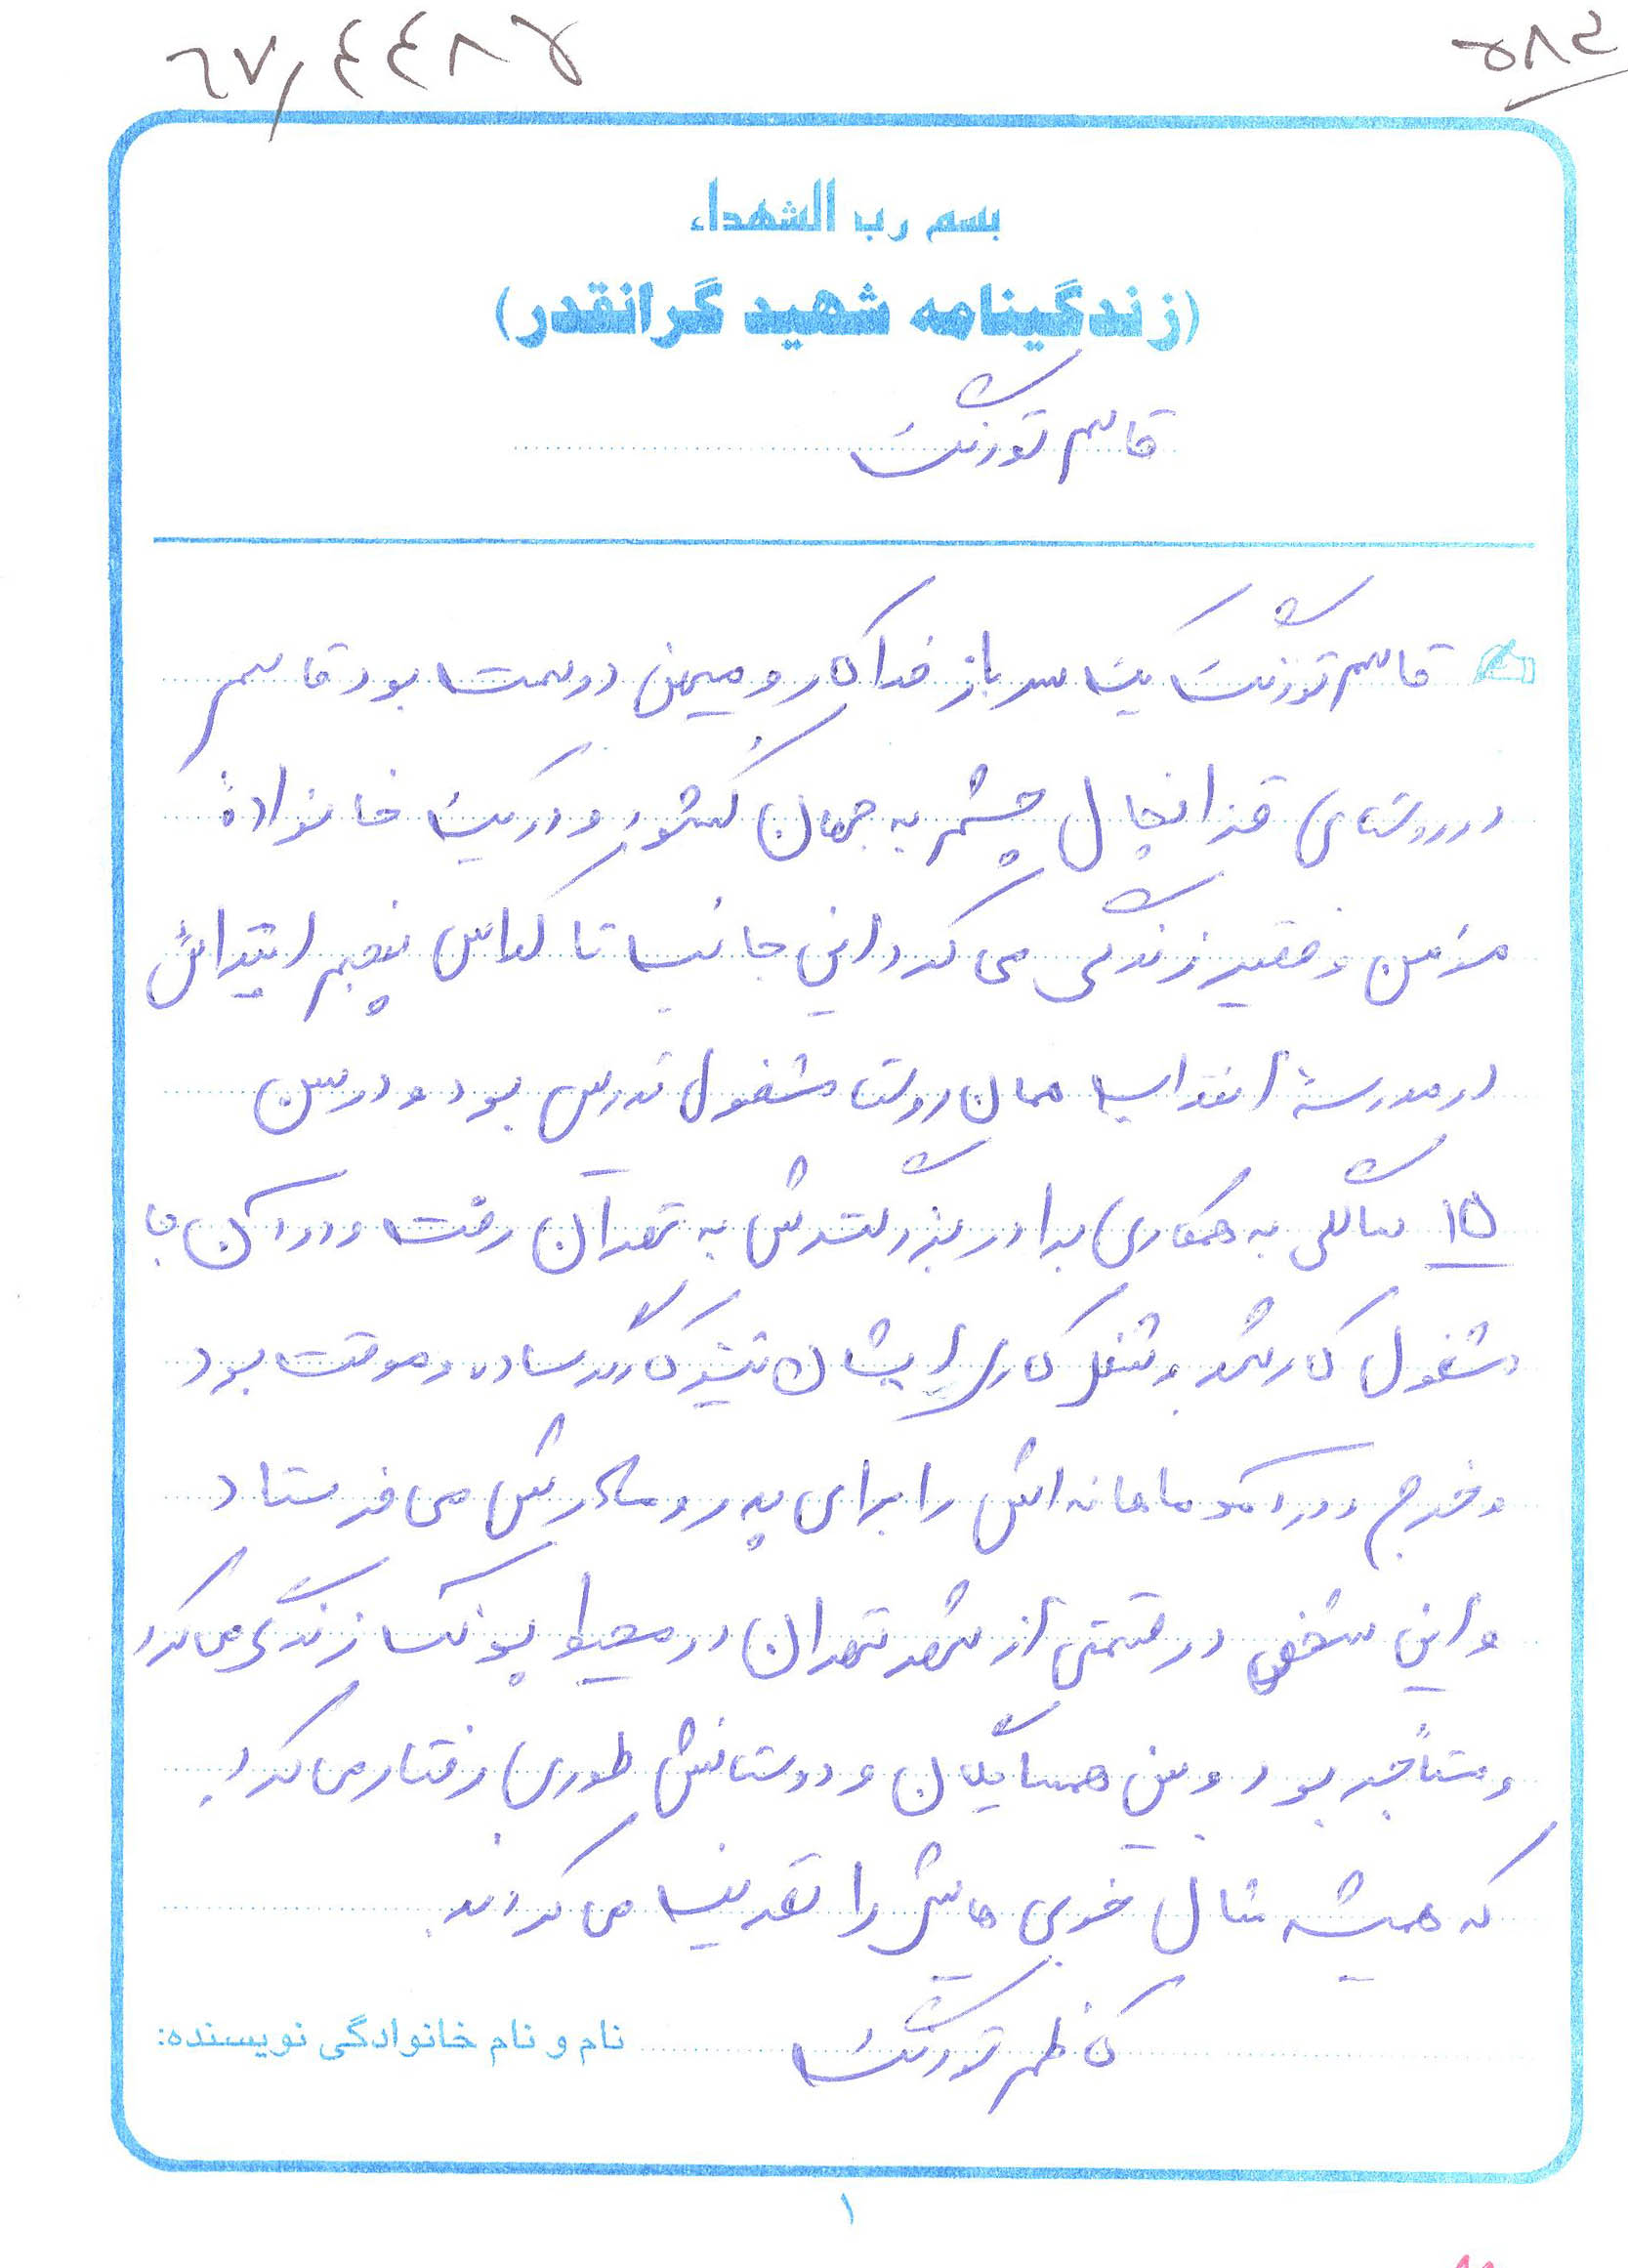 بسم رب الشهداء
(زندگینامه شهید گرانقدر)
قاسم تورنگ
قاسم تورنگ یک سرباز فداکار و میهن دوست بود قاسم
در روستای قزانچال چشم به جهان گشود و در یک خانوادهٔ
مؤمن و فقیر زندگی می کرد این جانب تا کلاس پنجم ابتدائی
در مدرسهٔ ابتدایی همان روستا مشغول تدرس بود و در سن
۱۵ سالگی به همکاری برادر بزرگترش به تهران رفت و در آن جا
مشغول کار شد و شغل کاری ایشان نیز کارگر ساده و موقت بود
و خرج و درآمد ماهانه اش را برای پدر و مادرش می فرستاد
و این شخص در قسمتی از شهر تهران در محیط پونک زندگی می کرد
و مستأجر بود و بین همسایگان و دوستانش طوری رفتار می کرد
که همیشه مثال خوبی هایش را تعریف می کردند.
نام و نام خانوادگی نویسنده: کاظم تورنگ
۱